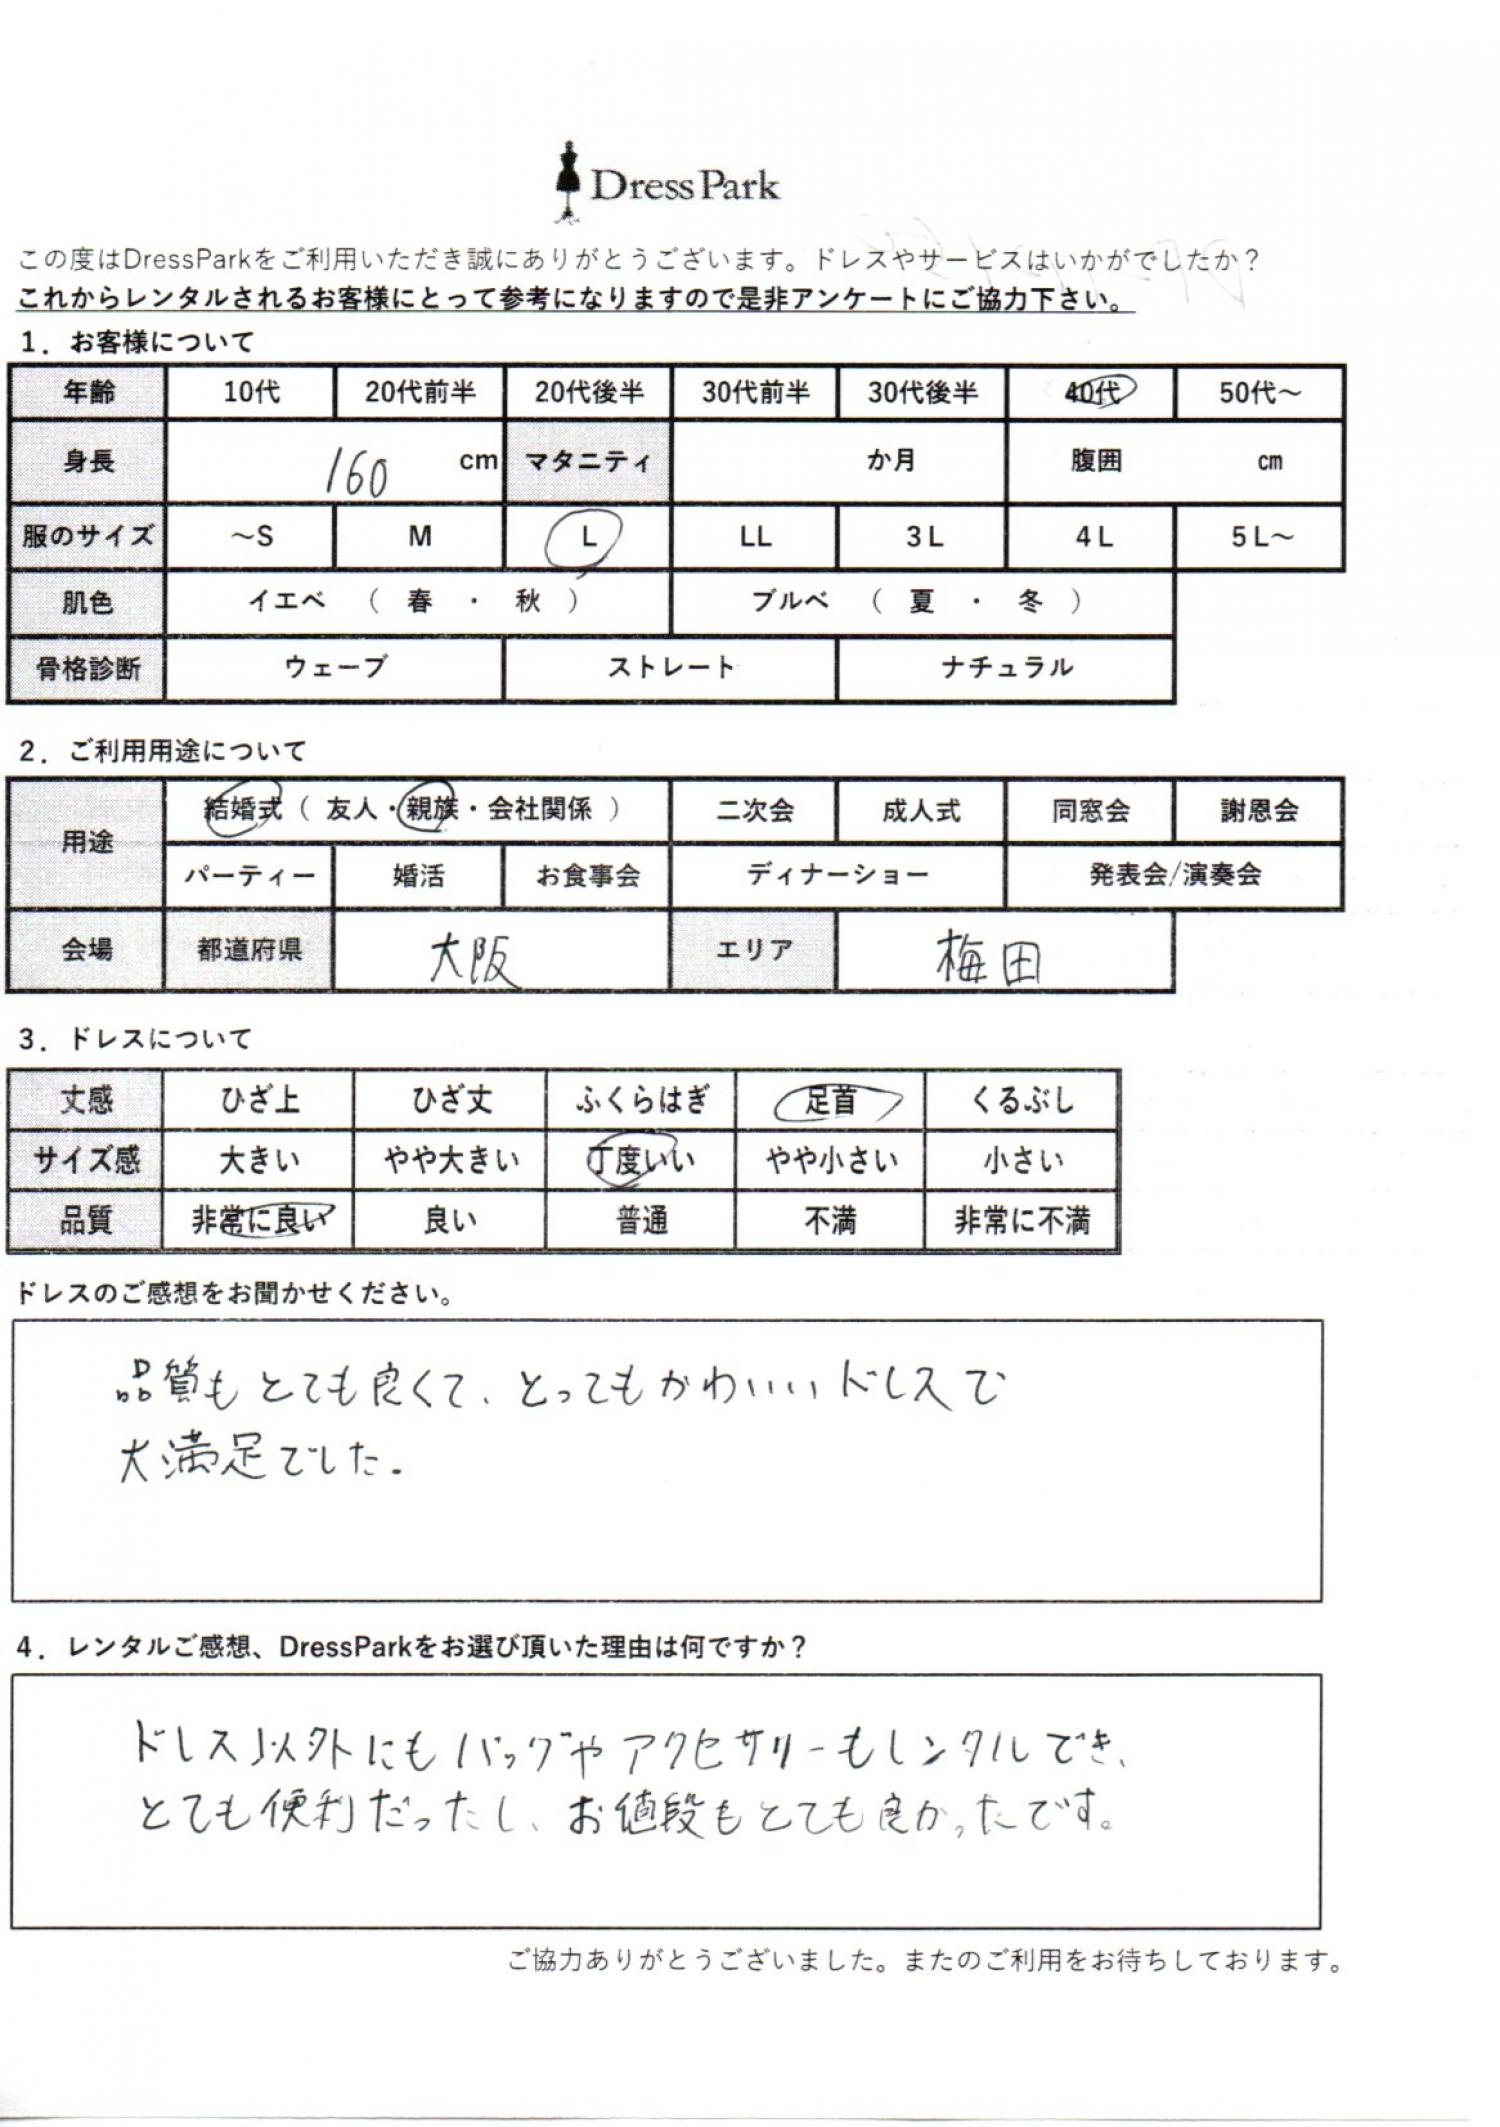 DressPark
この度はDressParkをご利用いただき誠にありがとうございます。ドレスやサービスはいかがでしたか？
これからレンタルされるお客様にとって参考になりますので是非アンケートにご協力下さい。
1．お客様について
年齢 10代 20代前半 20代後半 30代前半 30代後半 40代 50代～
身長 160 cm マタニティ か月 腹囲 ㎝
服のサイズ ～S M L LL 3L 4L 5L～
肌色 イエベ （ 春 ・ 秋 ） ブルベ （ 夏 ・ 冬 ）
骨格診断 ウェーブ ストレート ナチュラル
2．ご利用用途について
用途 結婚式（ 友人・親族・会社関係 ） 二次会 成人式 同窓会 謝恩会
パーティー 婚活 お食事会 ディナーショー 発表会/演奏会
会場 都道府県 大阪 エリア 梅田
3．ドレスについて
丈感 ひざ上 ひざ丈 ふくらはぎ 足首 くるぶし
サイズ感 大きい やや大きい 丁度いい やや小さい 小さい
品質 非常に良い 良い 普通 不満 非常に不満
ドレスのご感想をお聞かせください。
品質もとても良くて、とってもかわいいドレスで
大満足でした.
4．レンタルご感想、DressParkをお選び頂いた理由は何ですか？
ドレス以外にもバッグやアクセサリーもレンタルでき、
とても便利だったし、お値段もとても良かったです。
ご協力ありがとうございました。またのご利用をお待ちしております。